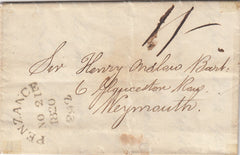 1/-
Sir Henry Onslow Bart
6 Gloucester Row
Weymouth.
PENZANCE
NO 21
1820